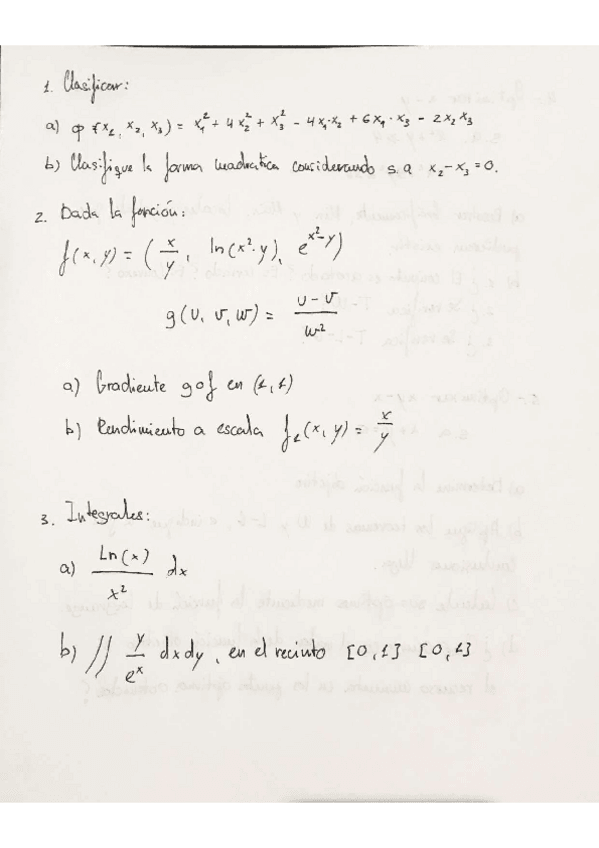 1. Clasificar:
a) φ (x₁, x₂, x₃) = x₁² + 4x₂² + x₃² - 4x₁·x₂ + 6x₁·x₃ - 2x₂x₃
b) Clasifique la forma cuadratica considerando s.a x₂-x₃=0.
2. Dada la función:
f(x,y) = (x/y, ln(x²·y), e^(x²-y))
g(u, v, w) = (u-v)/w²
a) Gradiente g∘f en (1,1)
b) Rendimiento a escala f₁(x,y) = x/y
3. Integrales:
a) Ln(x)/x² dx
b) ∫∫ y/eˣ dxdy, en el recinto [0,1] [0,1]